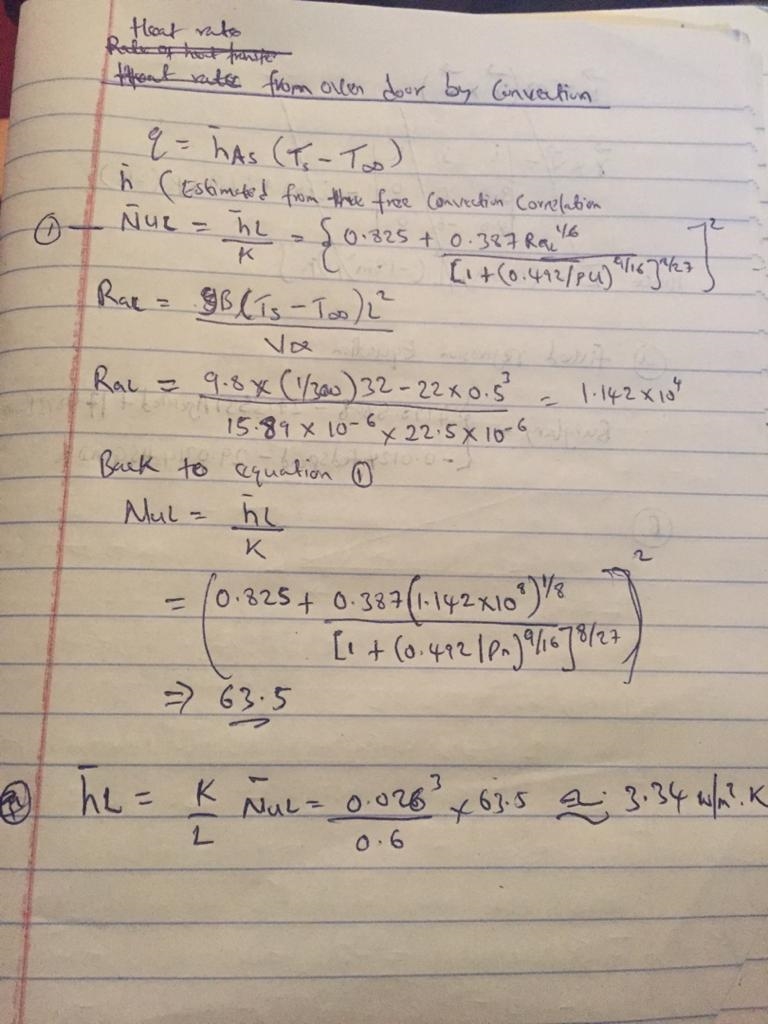 Heat rate
Rate of heat transfer
Heat rate from oven door by Convection
q = h̄As (Ts - T∞)
h̄ (Estimated from free convection Correlation
① — N̄uL = h̄L/K = {0.825 + 0.387 RaL^1/6 / [1 + (0.492/Pr)^9/16]^8/27}^2
RaL = gB(Ts - T∞)L^2 / V∝
RaL = 9.8 × (1/300) 32 - 22 × 0.5^3 / 15.89 × 10^-6 × 22.5 × 10^-6 = 1.142 × 10^4
Back to equation ①
NuL = h̄L/K
= (0.825 + 0.387(1.142×10^8)^1/8 / [1 + (0.492/Pr)^9/16]^8/27)^2
⇒ 63.5
h̄L = K/L N̄uL = 0.0263/0.6 × 63.5 ≃ 3.34 w/m².K